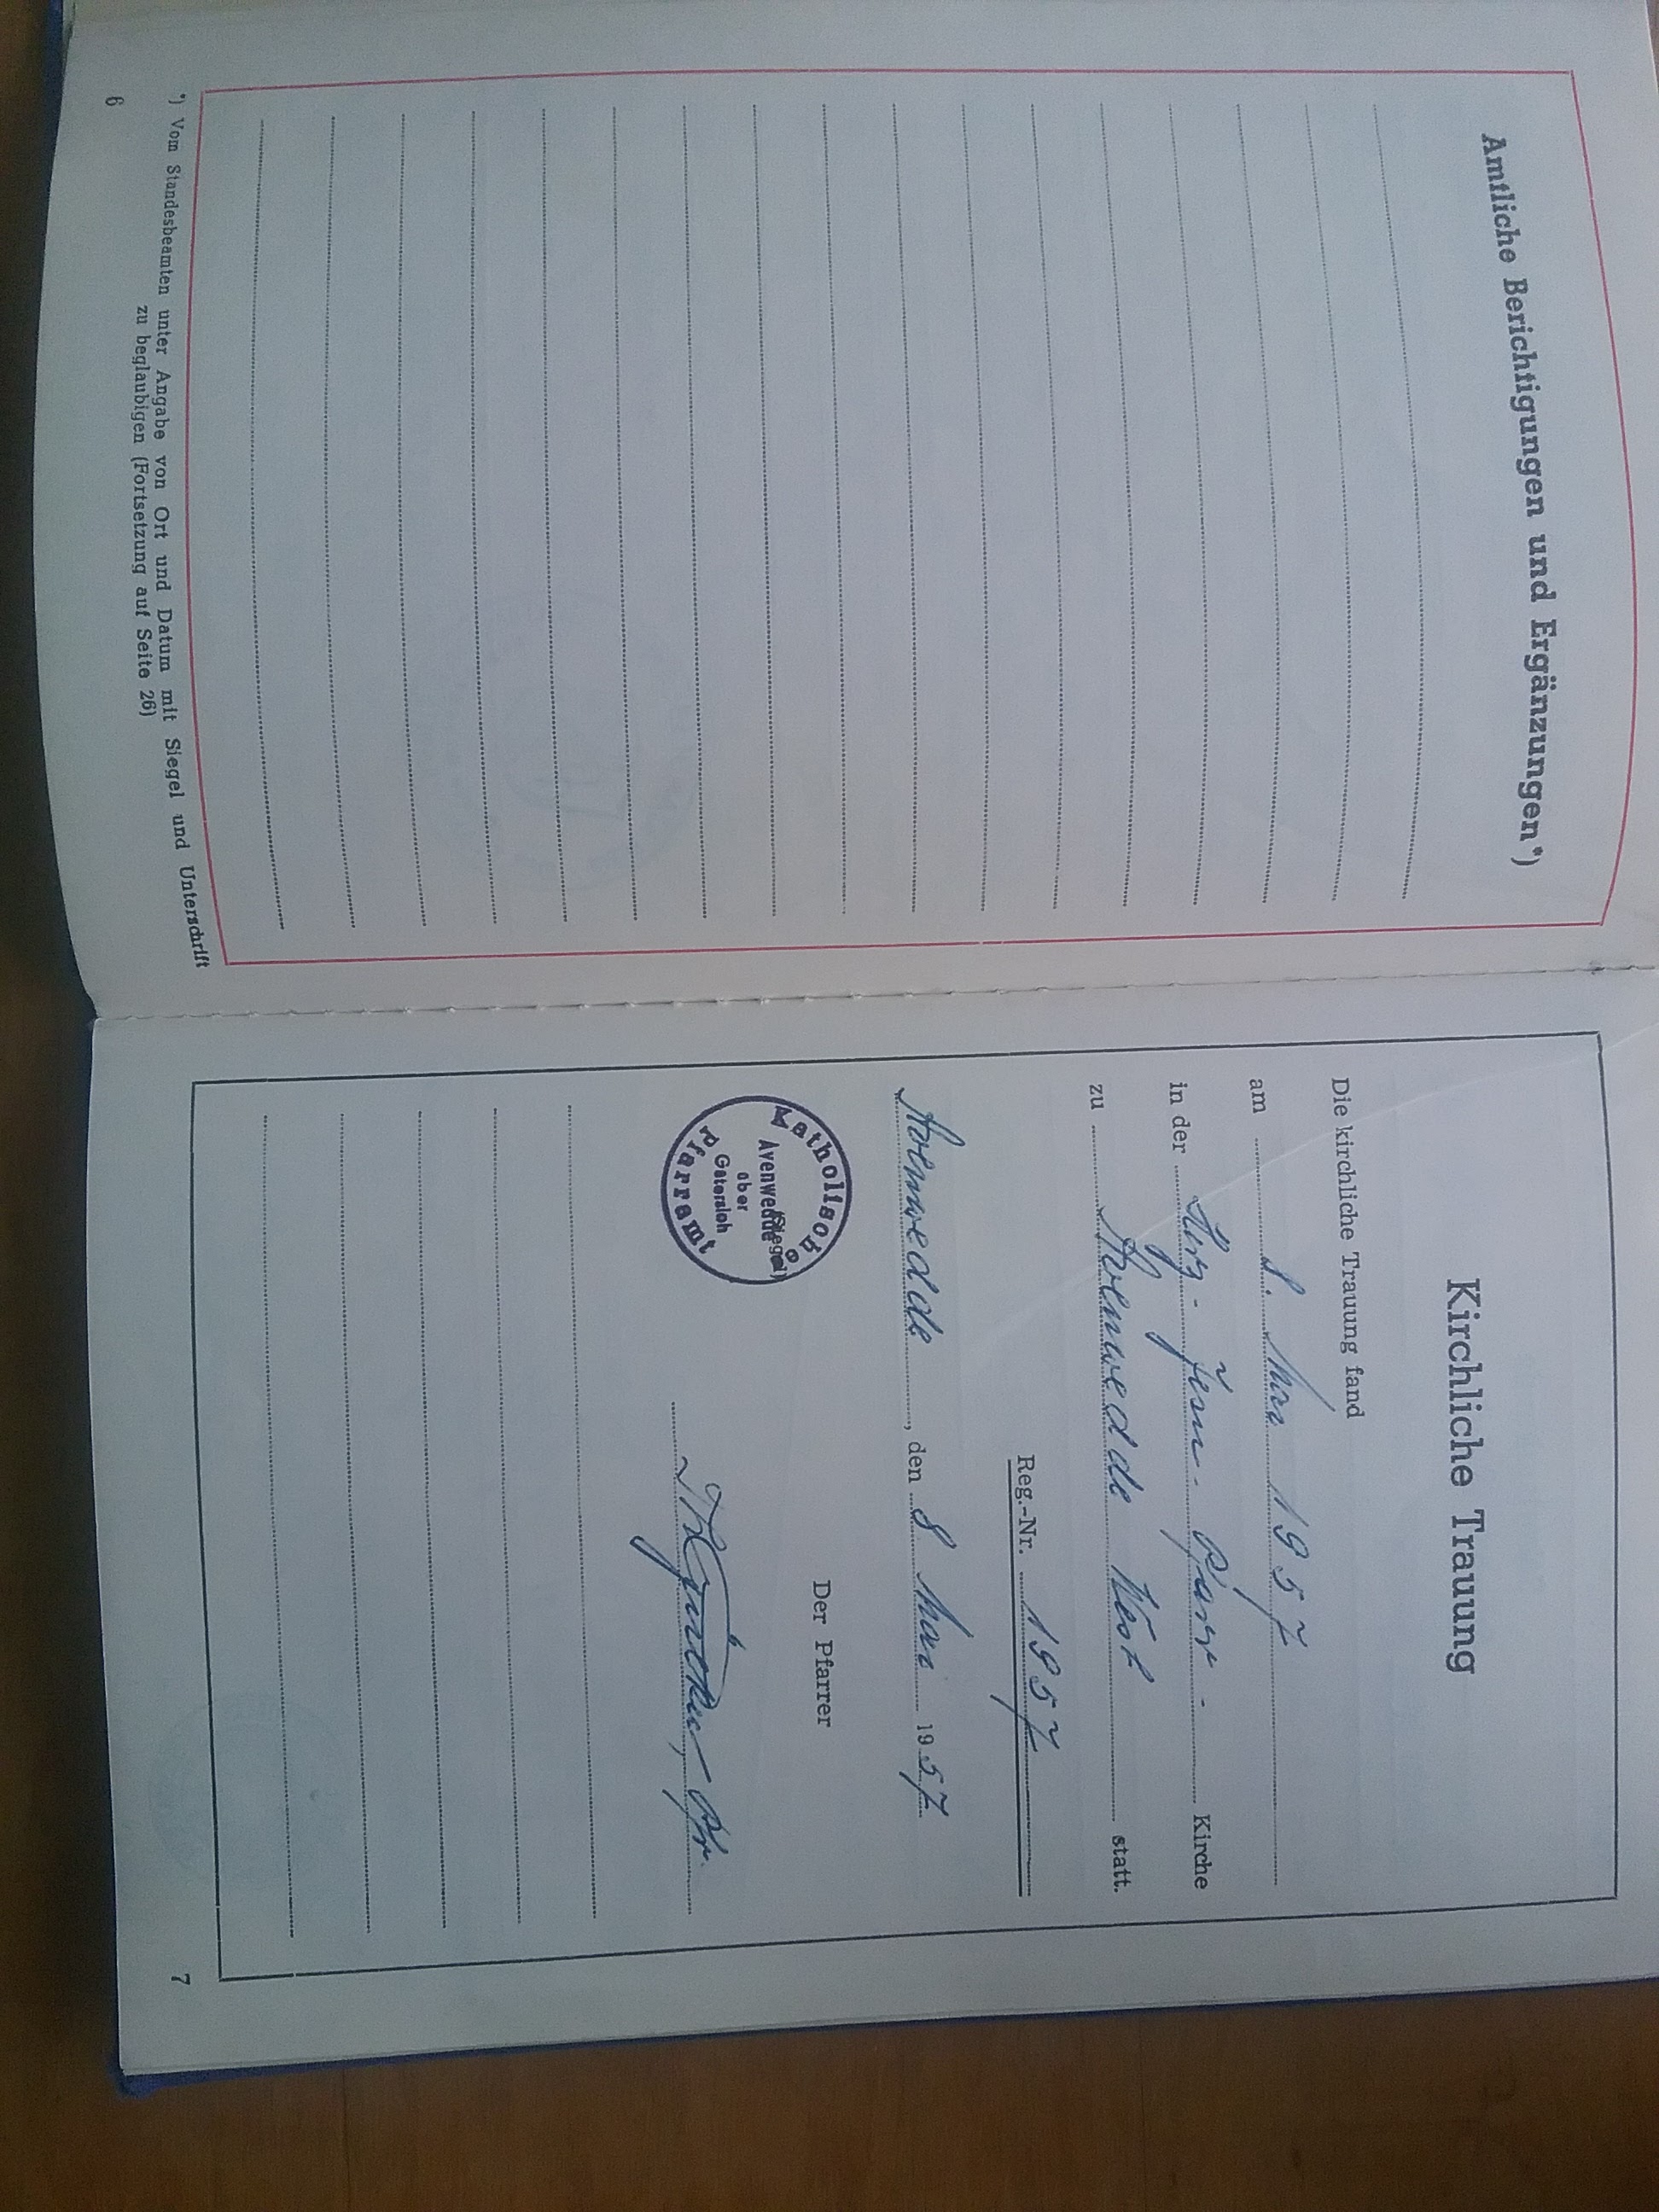 Amtliche Berichtigungen und Ergänzungen*)
*) Vom Standesbeamten unter Angabe von Ort und Datum mit Siegel und Unterschrift
zu beglaubigen (Fortsetzung auf Seite 26)
6
Kirchliche Trauung
Die kirchliche Trauung fand
am 8. Mai 1957
in der Herz-Jesu-Pfarr- Kirche
zu Avenwedde West statt.
Reg.-Nr. 1957
Avenwedde, den 8 Mai 1957
Der Pfarrer
Katholisches
Avenwedde
(Siegel)
über
Gütersloh
Pfarramt
Pfr.
7